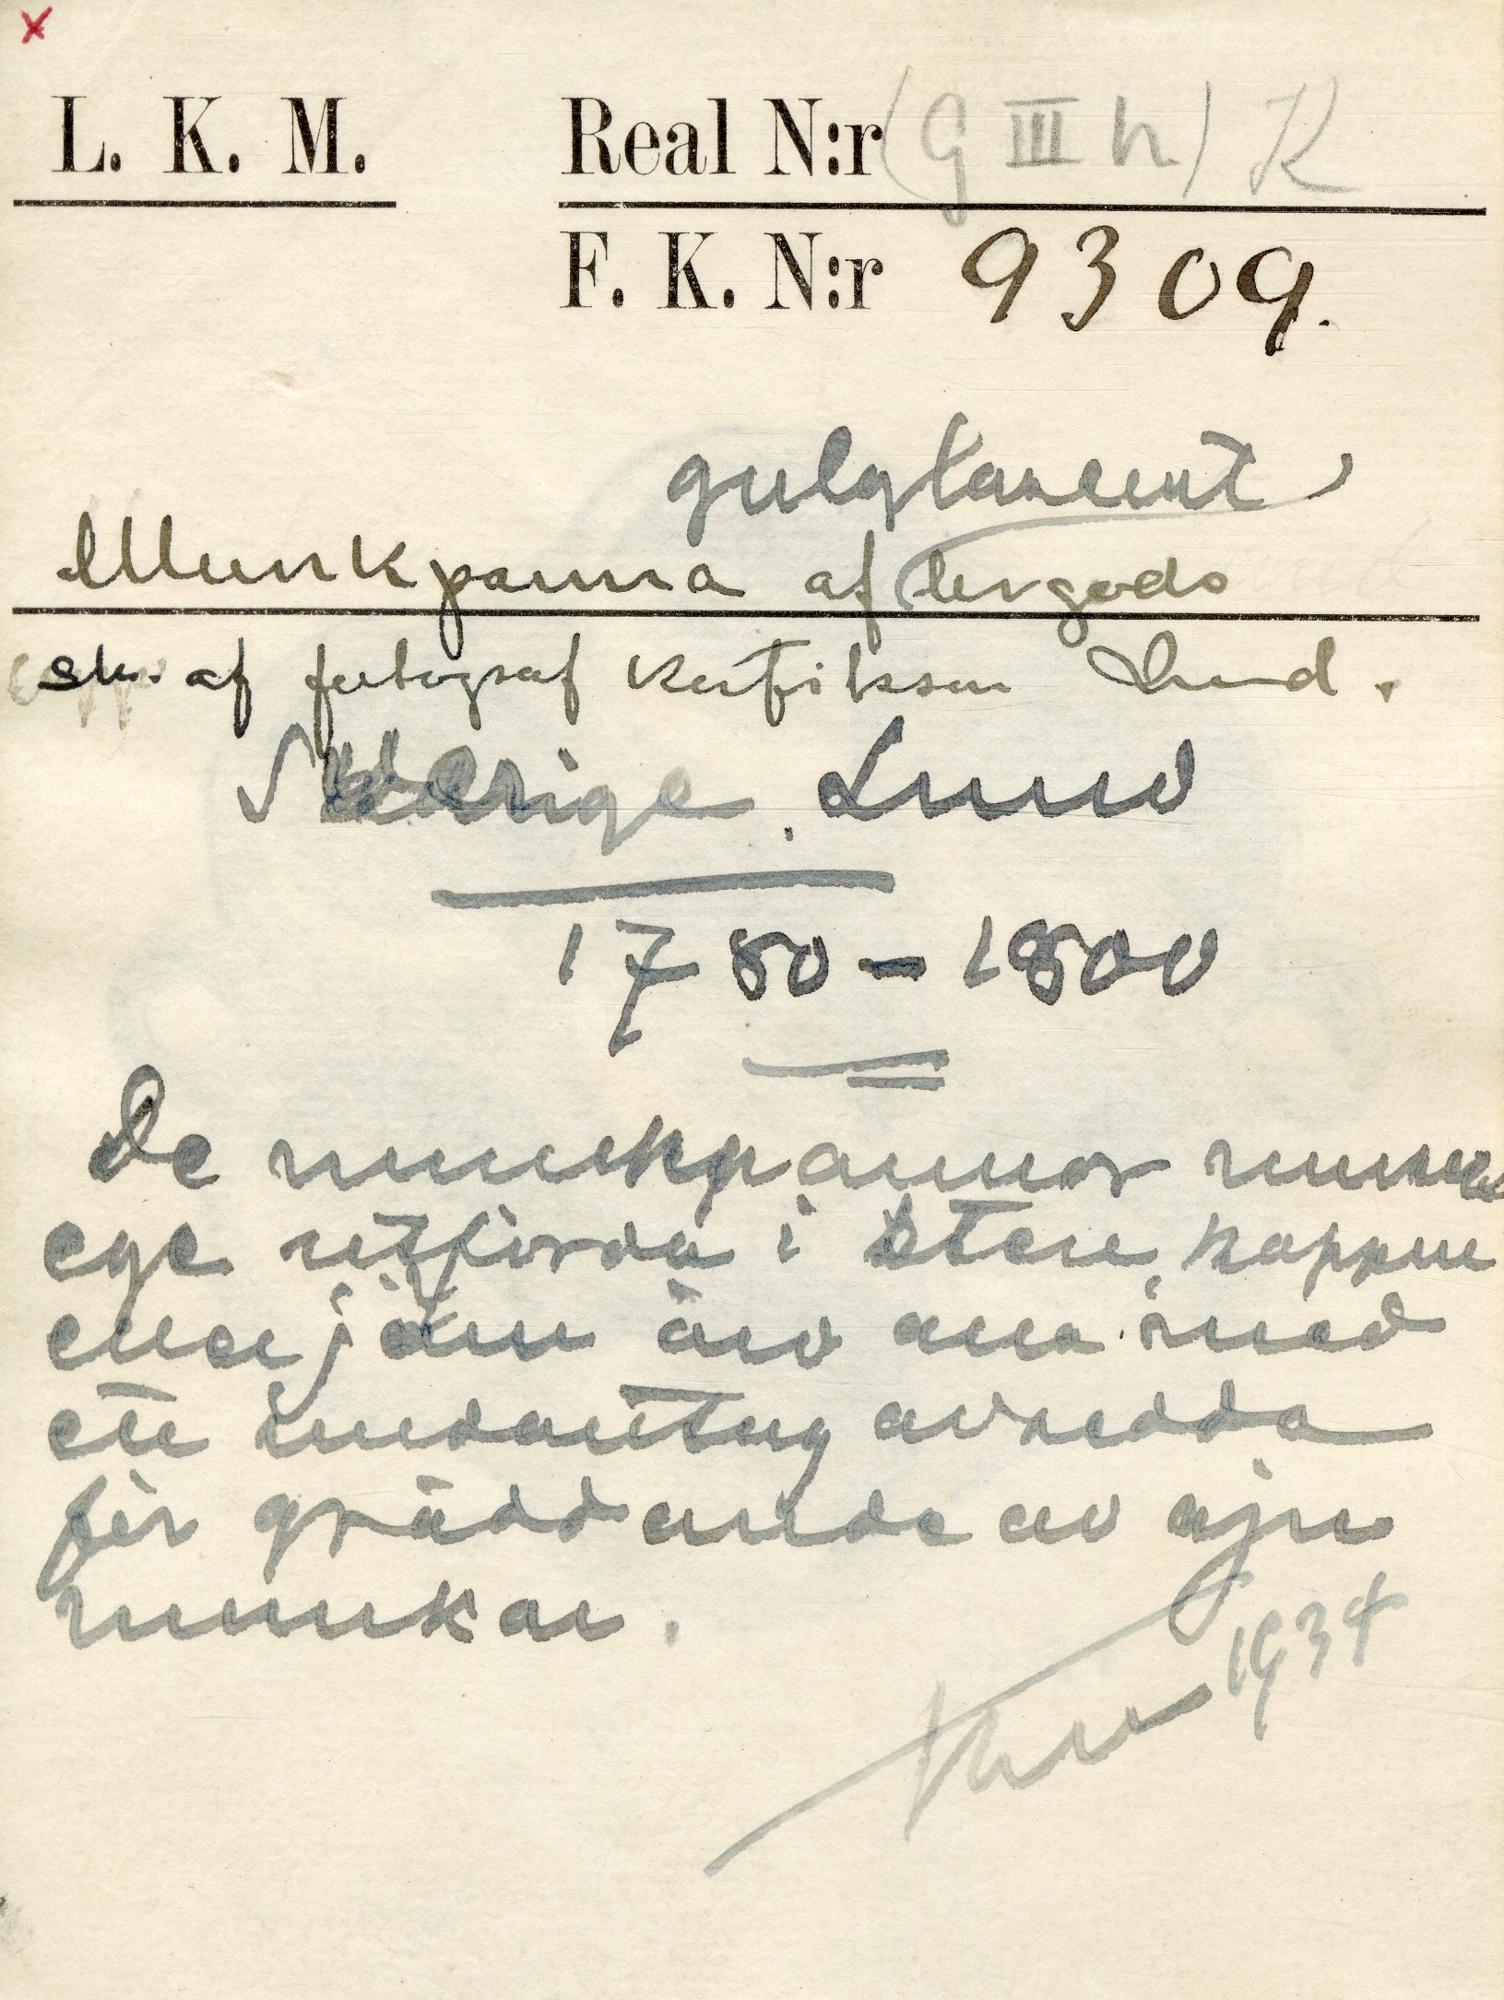 L. K. M. Real N:r (G III h) K
F. K. N:r 9309.
gulglaserat
Munkpanna af lergods
sk. af fotograf Lund.
Sverige. Lund
1780-1800
De munkpannor
ege utförda i sten, koppar
eller järn äro alla med
ett undantag avsedda
för gräddande av sju
munkar.
1934